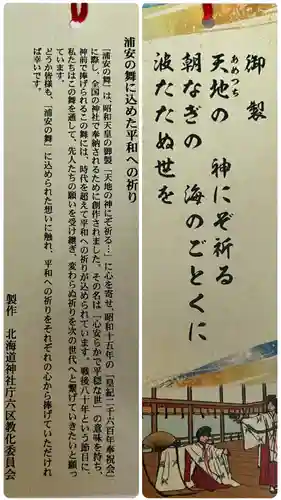 浦安の舞に込めた平和への祈り
「浦安の舞」は、昭和天皇の御製「天地の神にぞ祈る…」に心を寄せ、昭和十五年の「皇紀二千六百年奉祝会」
に際し、全国の神社で奉納されるために創作されました。その名は「心安らかで平穏な世」の意味を持ち、
神前で捧げられるこの舞には、時代を超えて平和への祈りが込められています。戦後八十年という節目に、
私たちはこの舞を通して、先人たちの願いを受け継ぎ、変わらぬ祈りを次の世代へと繋げていきたいと願っ
ています。
どうか皆様も、「浦安の舞」に込められた想いに触れ、平和への祈りをそれぞれの心から捧げていただけれ
ば幸いです。
製作 北海道神社庁六区教化委員会
御製
天地の 神にぞ祈る
あめつち
朝なぎの 海のごとくに
波たたぬ世を